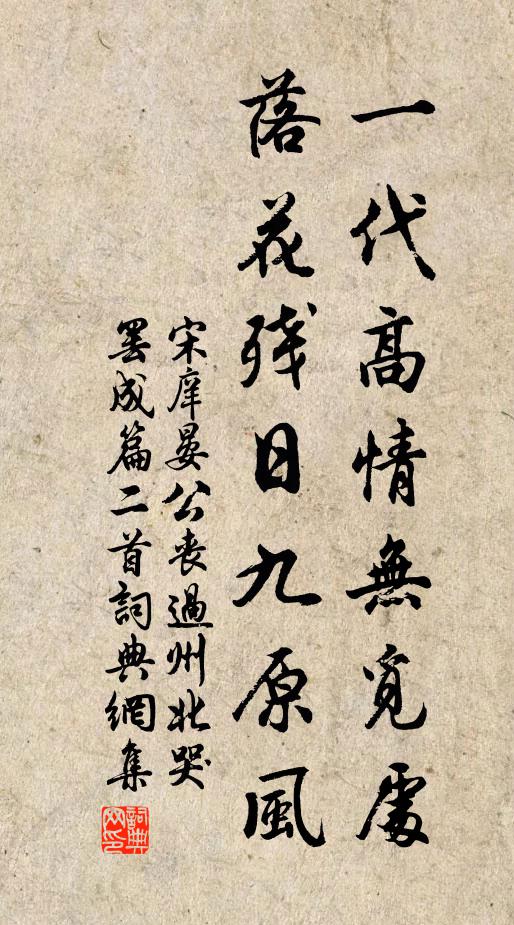 一代高情無覓處
落花殘日九原風
宋庠晏公喪過州北哭
罢成篇二首詞典網集
詞典网印